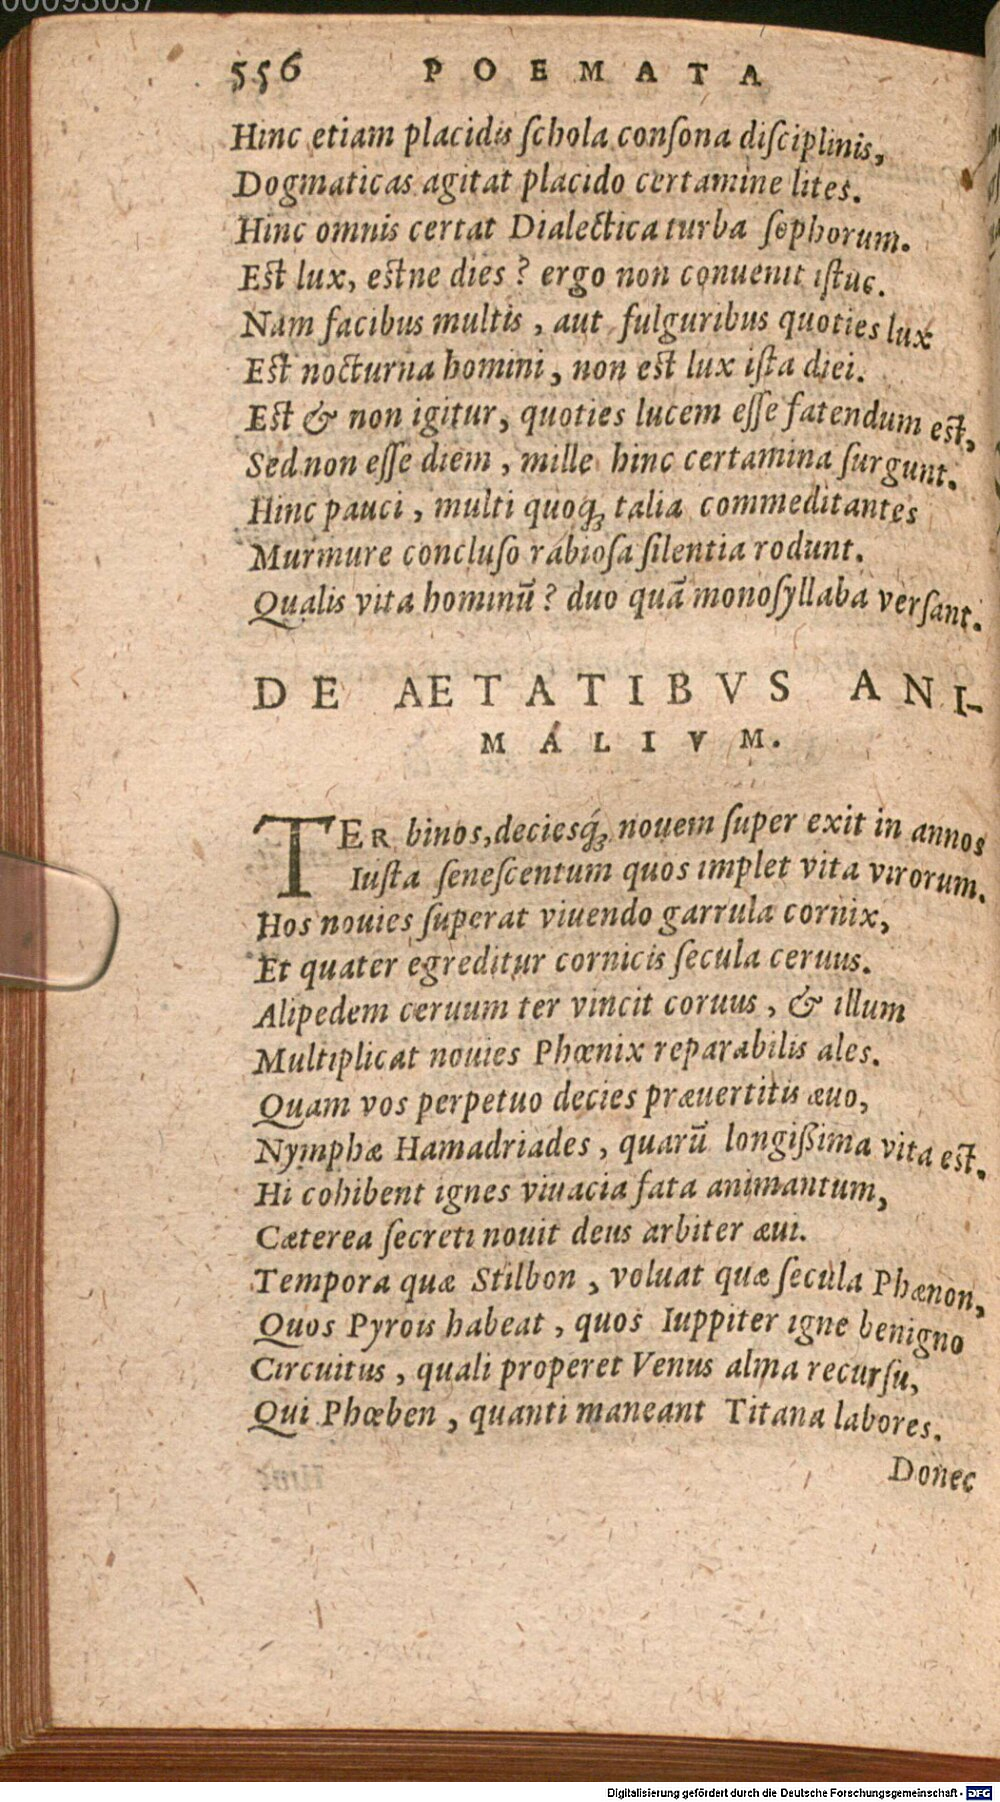 00093037
556 POEMATA
Hinc etiam placidis ſchola conſona diſciplinis,
Dogmaticas agitat placido certamine lites.
Hinc omnis certat Dialectica turba ſophorum.
Eſt lux, eſtne dies? ergo non conuenit iſtuc.
Nam facibus multis, aut fulguribus quoties lux
Eſt nocturna homini, non eſt lux iſta diei.
Eſt & non igitur, quoties lucem eſſe fatendum eſt,
Sed non eſſe diem, mille hinc certamina ſurgunt.
Hinc pauci, multi quoq; talia commeditantes
Murmure concluſo rabioſa ſilentia rodunt.
Qualis vita hominū? duo quā monoſyllaba verſant.
DE AETATIBVS ANI-
MALIVM.
TER binos, deciesq́; nouem ſuper exit in annos
Iuſta ſeneſcentum quos implet vita virorum.
Hos nouies ſuperat viuendo garrula cornix,
Et quater egreditur cornicis ſecula ceruus.
Alipedem ceruum ter vincit coruus, & illum
Multiplicat nouies Phœnix reparabilis ales.
Quam vos perpetuo decies præuertitis æuo,
Nymphæ Hamadriades, quarū longiſsima vita eſt.
Hi cohibent ignes viuacia fata animantum,
Cæterea ſecreti nouit deus arbiter æui.
Tempora quæ Stilbon, voluat quæ ſecula Phænon,
Quos Pyrois habeat, quos Iuppiter igne benigno
Circuitus, quali properet Venus alma recurſu,
Qui Phœben, quanti maneant Titana labores.
Donec
Digitalisierung gefördert durch die Deutsche Forschungsgemeinschaft - DFG